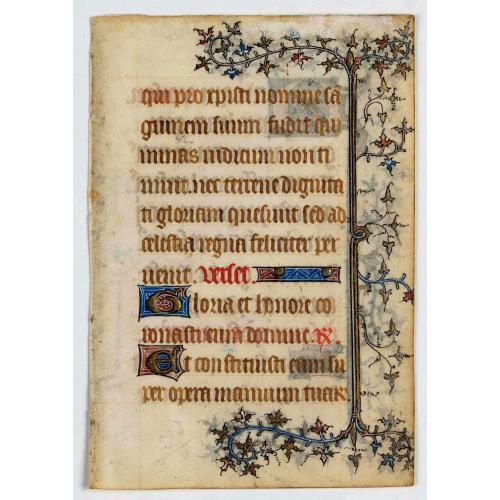 qui pro xpisti nomine sa
guinem suum fudit qui
minas iudicum non ti
muit. nec terrene dignita
ti gloriam quesiuit sed ad
celestia regna feliciter per
uenit. verset
Gloria et honore co
ronasti eum domine. R.
Et constituisti eum su
per opera manuum tuar.